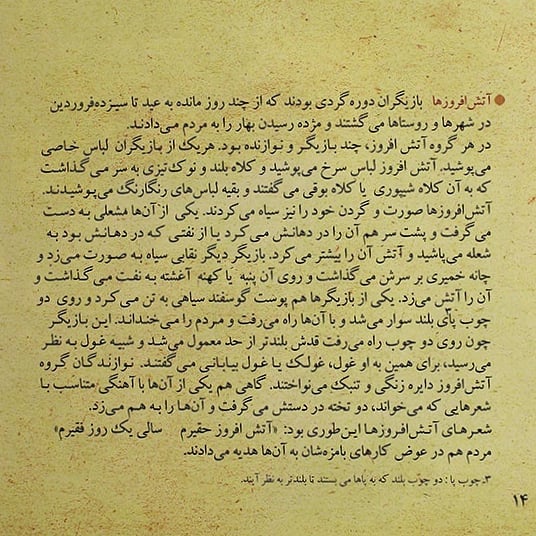 آتش‌افروزها بازیگران دوره گردی بودند که از چند روز مانده به عید تا سیزده‌فروردین
در شهرها و روستاها می‌گشتند و مژده رسیدن بهار را به مردم می‌دادند.
در هر گروه آتش افروز، چند بازیگر و نوازنده بود. هریک از بازیگران لباس خاصی
می‌پوشید. آتش افروز لباس سرخ می‌پوشید و کلاه بلند و نوک‌تیزی به سر می‌گذاشت
که به آن کلاه شیپوری یا کلاه بوقی می‌گفتند و بقیه لباس‌های رنگارنگ می‌پوشیدند.
آتش‌افروزها صورت و گردن خود را نیز سیاه می‌کردند. یکی از آن‌ها مشعلی به دست
می‌گرفت و پشت سر هم آن را در دهانش می‌کرد یا از نفتی که در دهانش بود به
شعله می‌پاشید و آتش آن را بیشتر می‌کرد. بازیگر دیگر نقابی سیاه به صورت می‌زد و
چانه خمیری بر سرش می‌گذاشت و روی آن پنبه یا کهنه آغشته به نفت می‌گذاشت و
آن را آتش می‌زد. یکی از بازیگرها هم پوست گوسفند سیاهی به تن می‌کرد و روی دو
چوب پای۳ بلند سوار می‌شد و با آن‌ها راه می‌رفت و مردم را می‌خنداند. این بازیگر
چون روی دو چوب راه می‌رفت قدش بلندتر از حد معمول می‌شد و شبیه غول به نظر
می‌رسید، برای همین به او غول، غولک یا غول بیابانی می‌گفتند. نوازندگان گروه
آتش‌افروز دایره زنگی و تنبک می‌نواختند. گاهی هم یکی از آن‌ها با آهنگی متناسب با
شعرهایی که می‌خواند، دو تخته در دستش می‌گرفت و آن‌ها را به هم می‌زد.
شعرهای آتش‌افروزها این‌طوری بود: «آتش افروز حقیرم سالی یک روز فقیرم»
مردم هم در عوض کارهای بامزه‌شان به آن‌ها هدیه می‌دادند.
۳. چوب پا: دو چوب بلند که به پاها می بستند تا بلندتر به نظر آیند.
۱۴